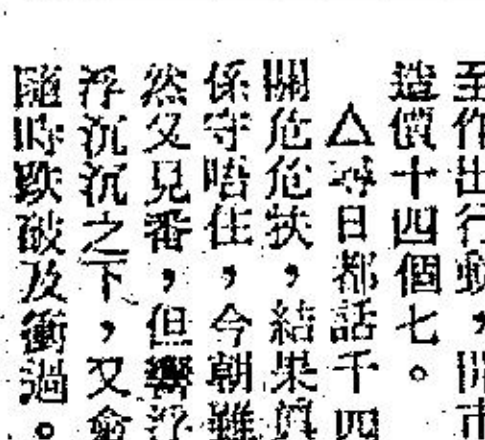 至作出行動，開市
造價十四個七。
△尋日都話千四
關危危扶，結果真
係守唔住，今朝雖
然又見番，但響浮
浮沉沉之下，又愈
隨時跌破及衝過。